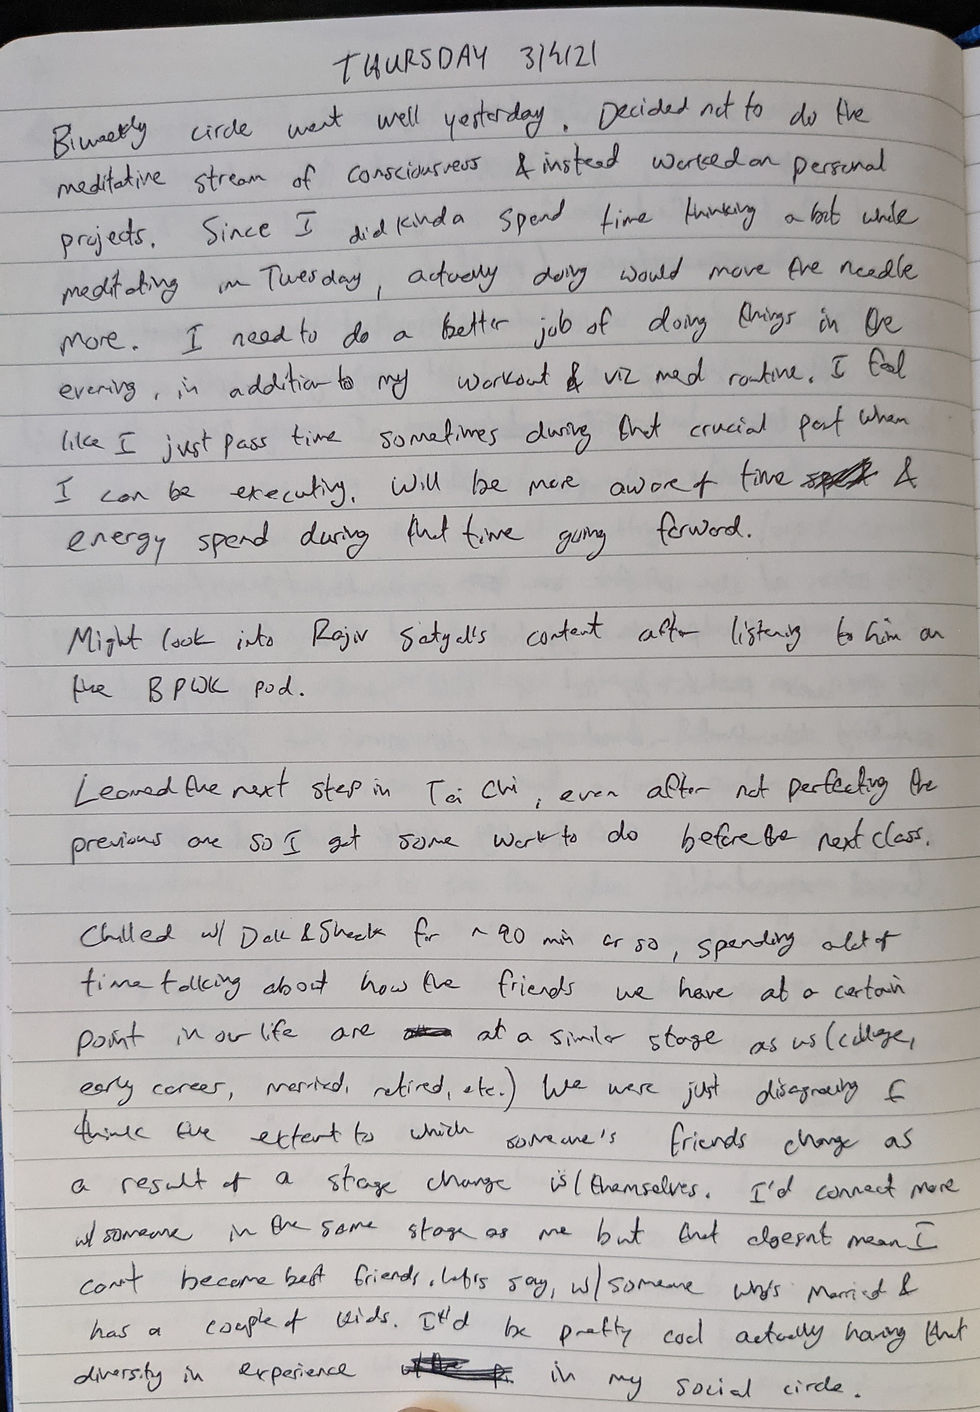 THURSDAY 3/4/21
Biweekly circle went well yesterday. Decided not to do the
meditative stream of consciousness & instead worked on personal
projects. Since I did kinda spend time thinking a bit while
meditating on Tuesday, actually doing would move the needle
more. I need to do a better job of doing things in the
evening, in addition to my workout & viz med routine. I feel
like I just pass time sometimes during that crucial part when
I can be executing. Will be more aware of time &
energy spend during that time going forward.
Might look into Rajiv Satyal's content after listening to him on
the BPWK pod.
Learned the next step in Tai Chi, even after not perfecting the
previous one so I got some work to do before the next class.
Chilled w/ Dak & Sheek for ~90 min or so, spending a lot of
time talking about how the friends we have at a certain
point in our life are at a similar stage as us (college,
early career, married, retired, etc.) We were just disagreeing I
think the extent to which someone's friends change as
a result of a stage change is/ themselves. I'd connect more
w/ someone in the same stage as me but that doesn't mean I
can't become best friends, let's say, w/ someone who's married &
has a couple of kids. It'd be pretty cool actually having that
diversity in experience in my social circle.